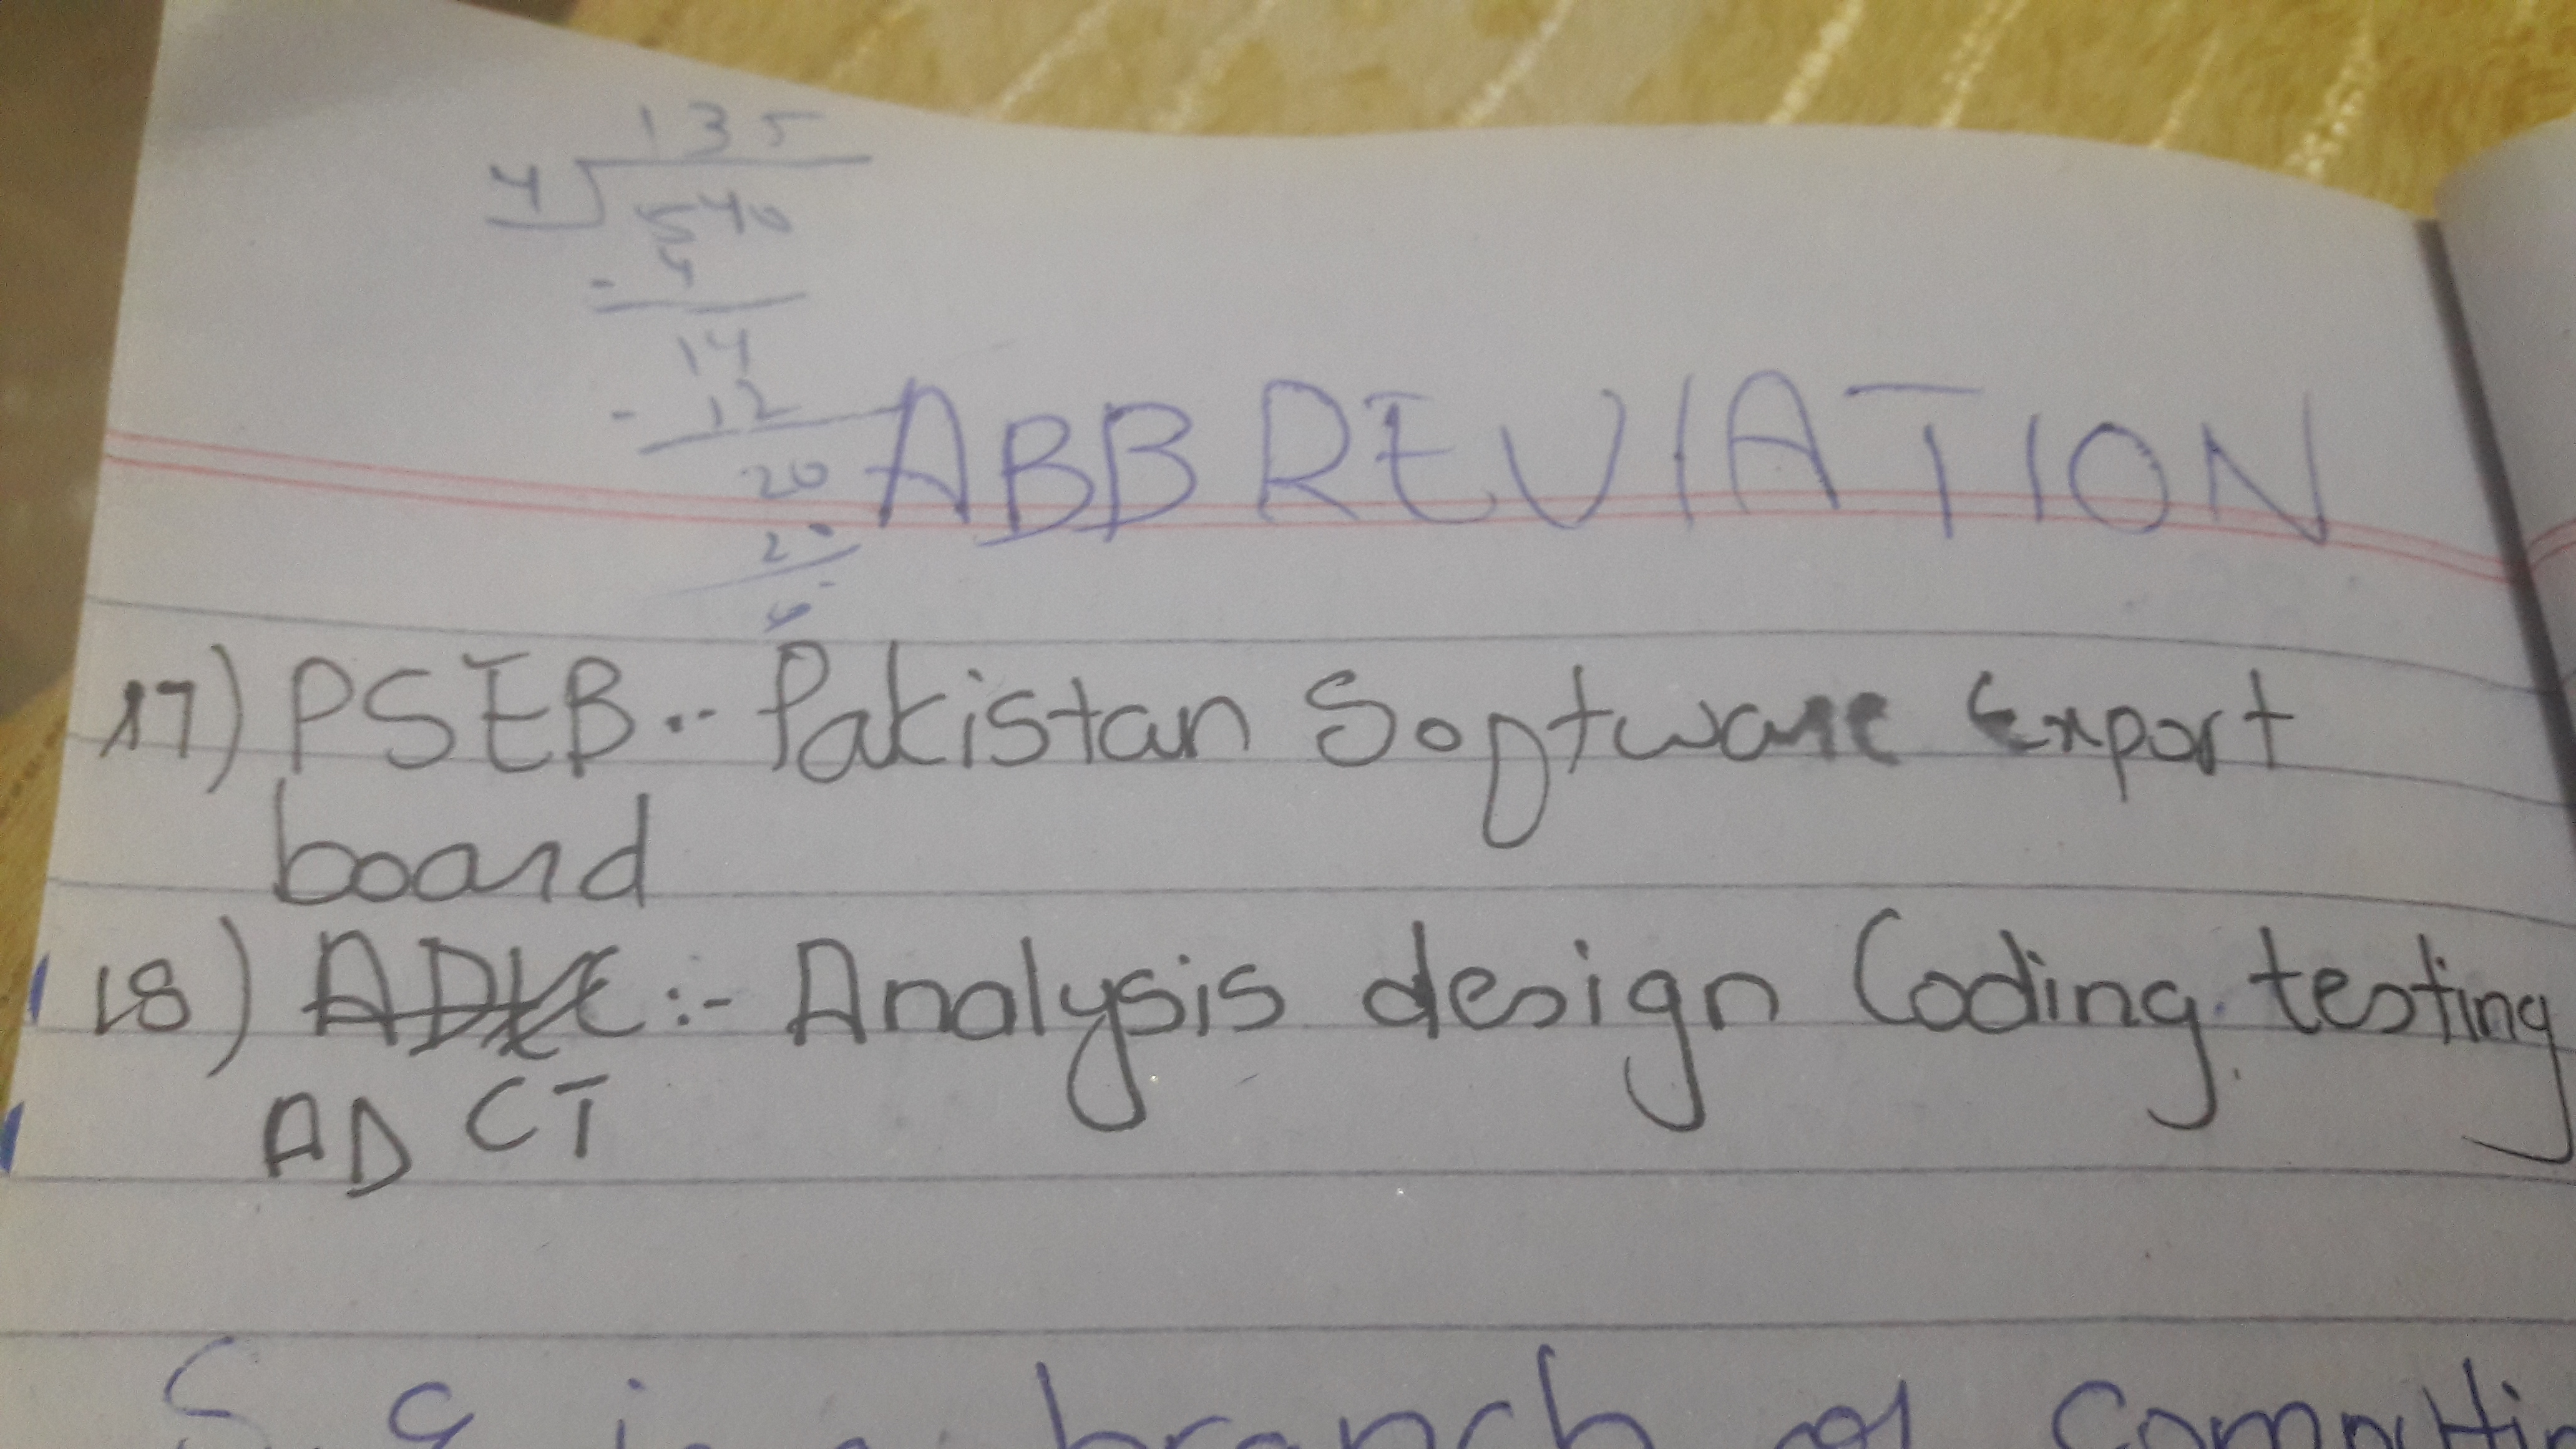 135
4 540
- 4
14
- 12
20
20
ABBREVIATION
17) PSEB :- Pakistan Software Export
board
18) :- Analysis design Coding testing
ADCT
is a branch of